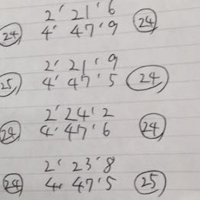 2' 21' 6
24 4' 47' 9 24
2' 21' 9
25 4' 47' 5 24
2' 24' 2
24 4' 47' 6 24
2' 23' 8
24 4' 47' 5 25